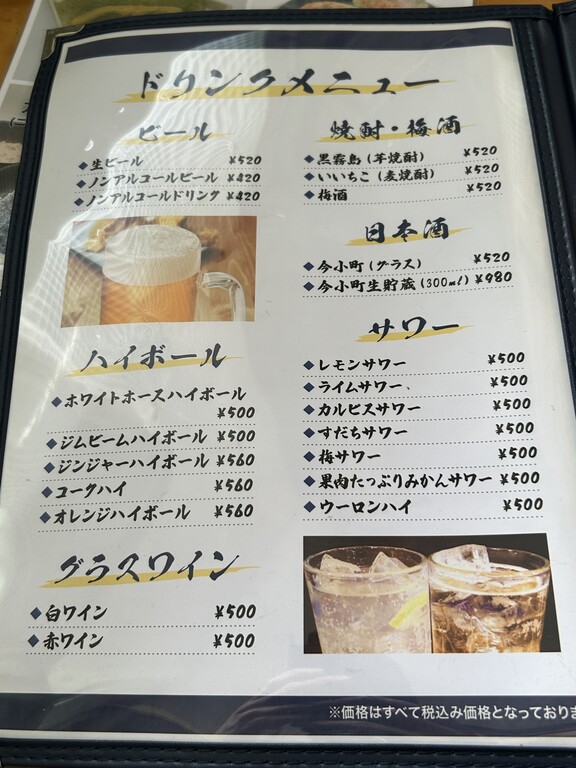 ドリンクメニュー
ビール
◆生ビール ¥520
◆ノンアルコールビール ¥420
◆ノンアルコールドリンク ¥420
ハイボール
◆ホワイトホースハイボール
¥500
◆ジムビームハイボール ¥500
◆ジンジャーハイボール ¥560
◆コークハイ ¥560
◆オレンジハイボール ¥560
グラスワイン
◆白ワイン ¥500
◆赤ワイン ¥500
焼酎・梅酒
◆黒霧島(芋焼酎) ¥520
◆いいちこ(麦焼酎) ¥520
◆梅酒 ¥520
日本酒
◆今小町(グラス) ¥520
◆今小町生貯蔵(300ml) ¥980
サワー
◆レモンサワー ¥500
◆ライムサワー ¥500
◆カルピスサワー ¥500
◆すだちサワー ¥500
◆梅サワー ¥500
◆果肉たっぷりみかんサワー ¥500
◆ウーロンハイ ¥500
※価格はすべて税込み価格となっておりま